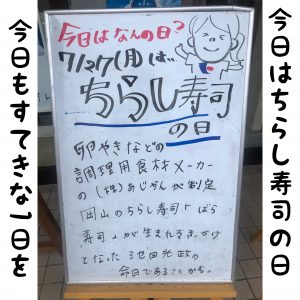 今日はちらし寿司の日
今日はなんの日?
7/27(月)は…
ちらし寿司
の日
卵やきなどの
調理用食材メーカー
の(株)あじかんが制定
岡山のちらし寿司「ばら
寿司」が生まれるきっかけ
となった池田光政の
命日であることから。
今日もすてきな1日を